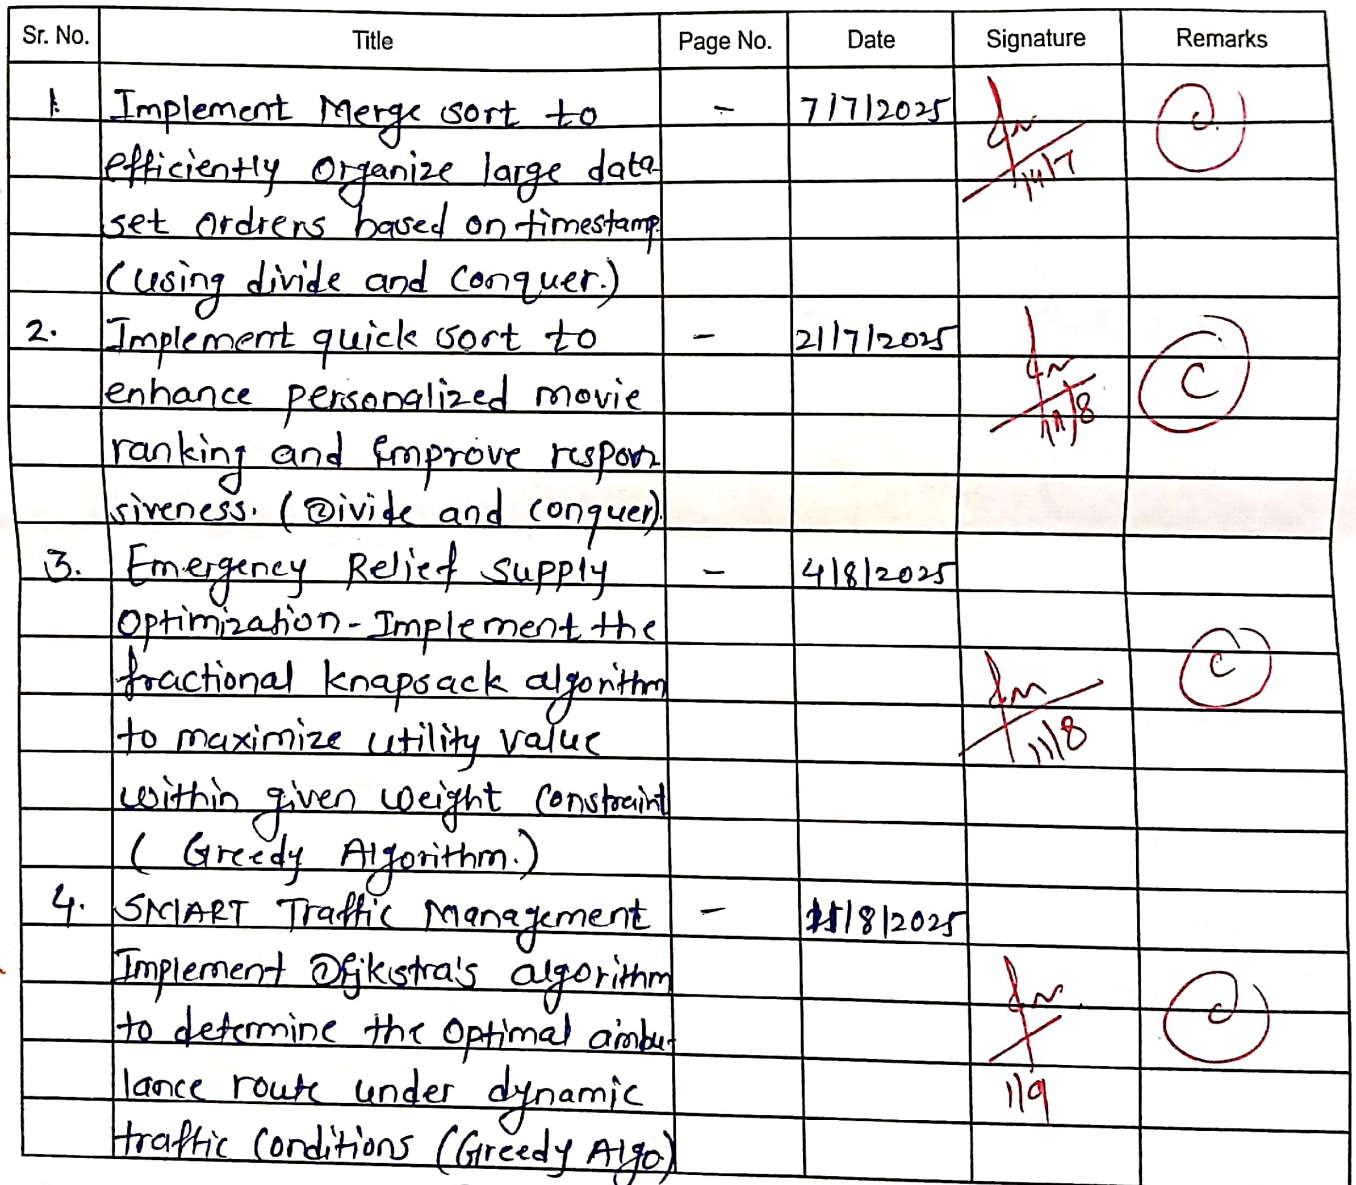 Sr. No. Title Page No. Date Signature Remarks
1. Implement Merge sort to - 7/7/2025
efficiently organize large data
14/7
set ordrers based on timestamp
(using divide and conquer.)
2. Implement quick sort to - 21/7/2025
enhance personalized movie C
ranking and improve respon
siveness. (Divide and conquer).
3. Emergency Relief supply - 4/8/2025
Optimization - Implement the
fractional knapsack algorithm C
to maximize utility value
11/8
within given weight constraint
(Greedy Algorithm.)
4. SMART Traffic Management - /8/2025
Implement Dijkstra's algorithm
to determine the optimal ambu-
lance route under dynamic
1/9
traffic conditions (Greedy Algo)